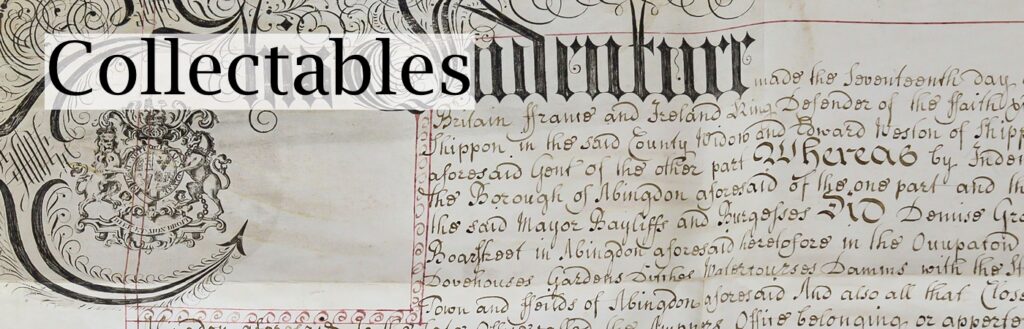 Collectables
Indenture made the Seventeenth day
Britain ffrance and Ireland King Defender of the ffaith
Shippon in the said County Widow and Edward Weston of Shipp
aforesaid Gent of the other part Whereas by Inden
the Borough of Abingdon aforesaid of the one part and th
the said Mayor Bayliffs and Burgesses Did Demise Gra
Boarstreet in Abingdon aforesaid heretofore in the Occupation
Dovehouses Gardens Ditches Watercourses Damms with the
Town and ffeilds of Abingdon aforesaid And also all that Close
Office belonging or apperte